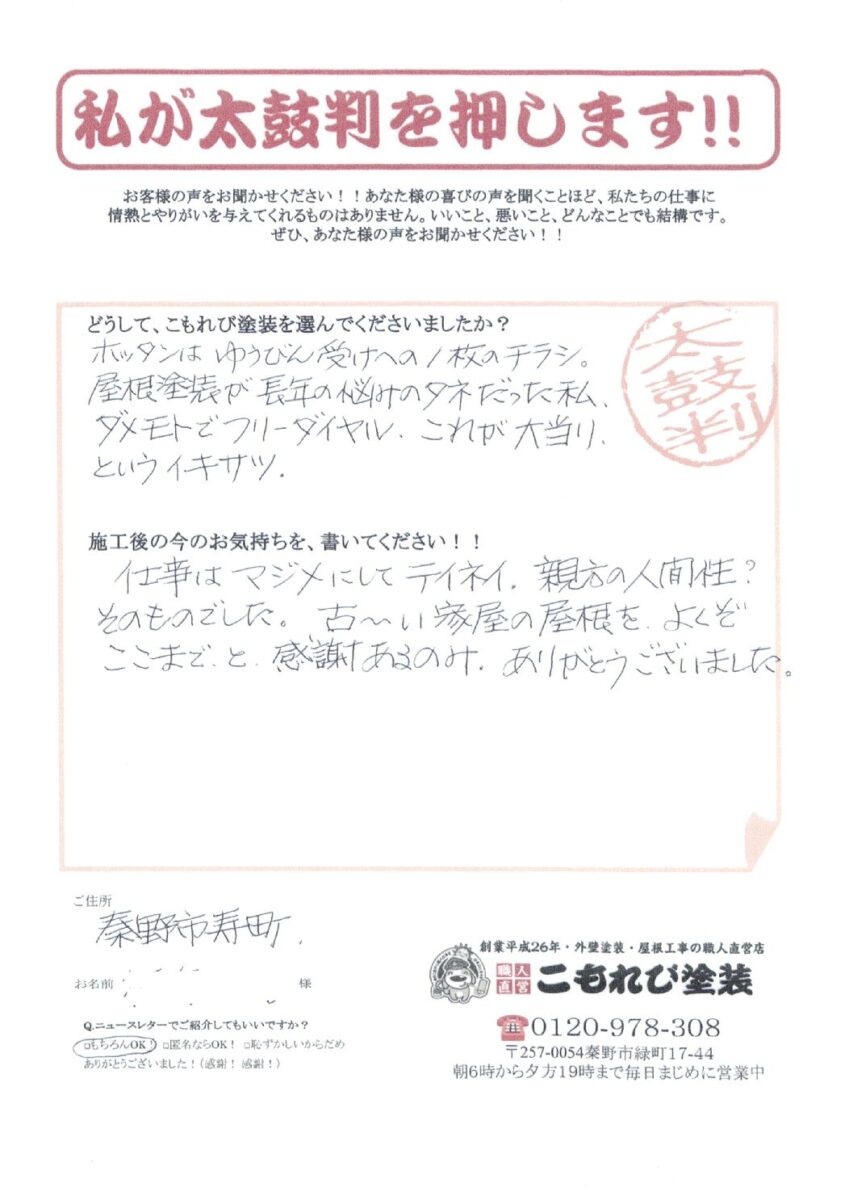 私が太鼓判を押します!!
お客様の声をお聞かせください！！あなた様の喜びの声を聞くことほど、私たちの仕事に
情熱とやりがいを与えてくれるものはありません。いいこと、悪いこと、どんなことでも結構です。
ぜひ、あなた様の声をお聞かせください！！
どうして、こもれび塗装を選んでくださいましたか？
ホッタンは ゆうびん受けへの1枚のチラシ。
屋根塗装が長年の悩みのタネだった私、
ダメモトでフリーダイヤル、これが大当り、
というイキサツ。
太鼓判
施工後の今のお気持ちを、書いてください！！
仕事はマジメにしてテイネイ、親方の人間性？
そのものでした。古〜い家屋の屋根を、よくぞ
ここまで、と、感謝あるのみ、ありがとうございました。
ご住所
秦野市寿町、
お名前 様
Q.ニュースレターでご紹介してもいいですか？
□もちろんOK！ □匿名ならOK！ □恥ずかしいからだめ
ありがとうございました！（感謝！感謝！）
創業平成26年・外壁塗装・屋根工事の職人直営店
職人直営 こもれび塗装
0120-978-308
〒257-0054秦野市緑町17-44
朝6時から夕方19時まで毎日まじめに営業中